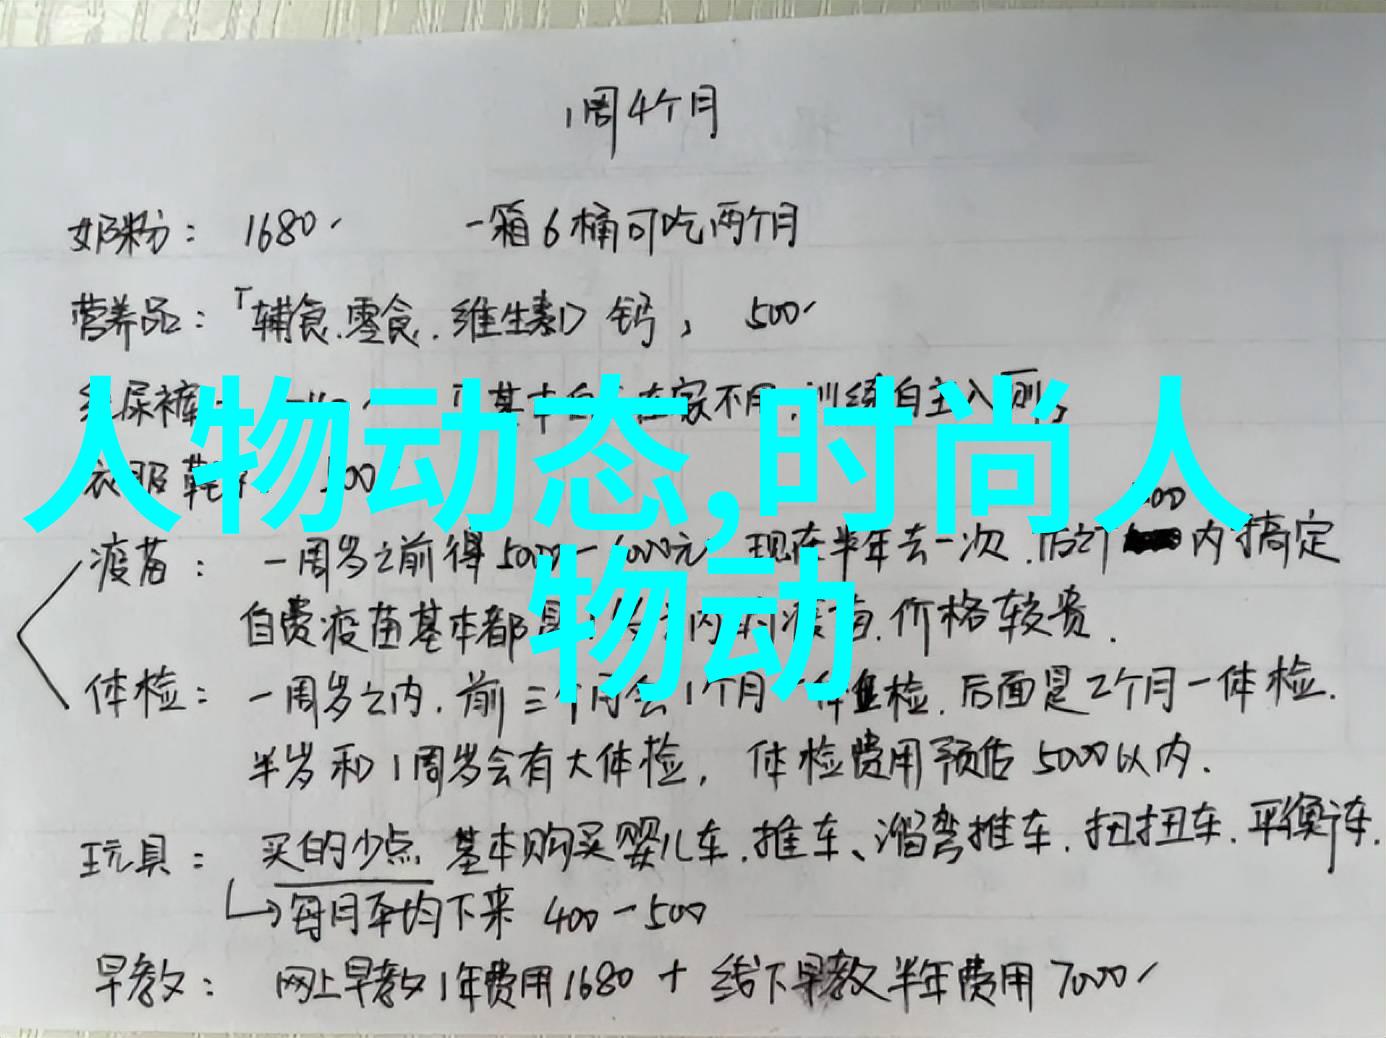 1周4个月
奶粉： 1680 一箱6桶可吃两个月
营养品：「辅食.零食.维生素D 钙， 500
尿裤 基本 在家不用,训练自主入厕,
人物动态,时尚人
物动
衣服鞋
疫苗： 一周岁之前得5000-6000元 现在半年去一次.后期 内搞定
自费疫苗基本都是 疫苗.价格较贵.
体检： 一周岁之内.前三个月会1个月 体检.后面是2个月一体检.
半岁和1周岁会有大体检， 体检费用预估5000以内.
玩具： 买的少点 基本购买婴儿车.推车、溜弯推车.扭扭车.平衡车.
每月平均下来 400-500
早教： 网上早教1年费用1680 + 线下早教半年费用7000